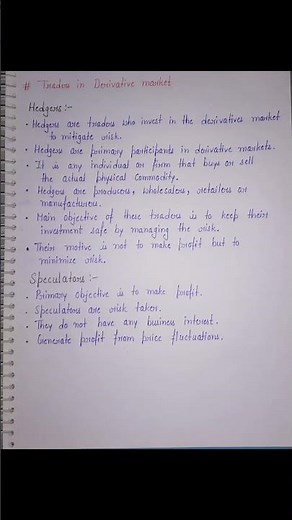 # Traders in Derivative market
Hedgers :-
• Hedgers are traders who invest in the derivatives market
to mitigate risk.
• Hedgers are primary participants in derivative markets.
• It is any individual or firm that buys or sell
the actual physical Commodity.
• Hedgers are producers, wholesalers, retailers or
manufacturers.
• Main objective of these traders is to keep their
investment safe by managing the risk.
• Their motive is not to make profit but to
minimise risk.
Speculators :-
• Primary objective is to make profit.
• Speculators are risk taker.
• They do not have any business interest.
• Generate profit from price fluctuations.